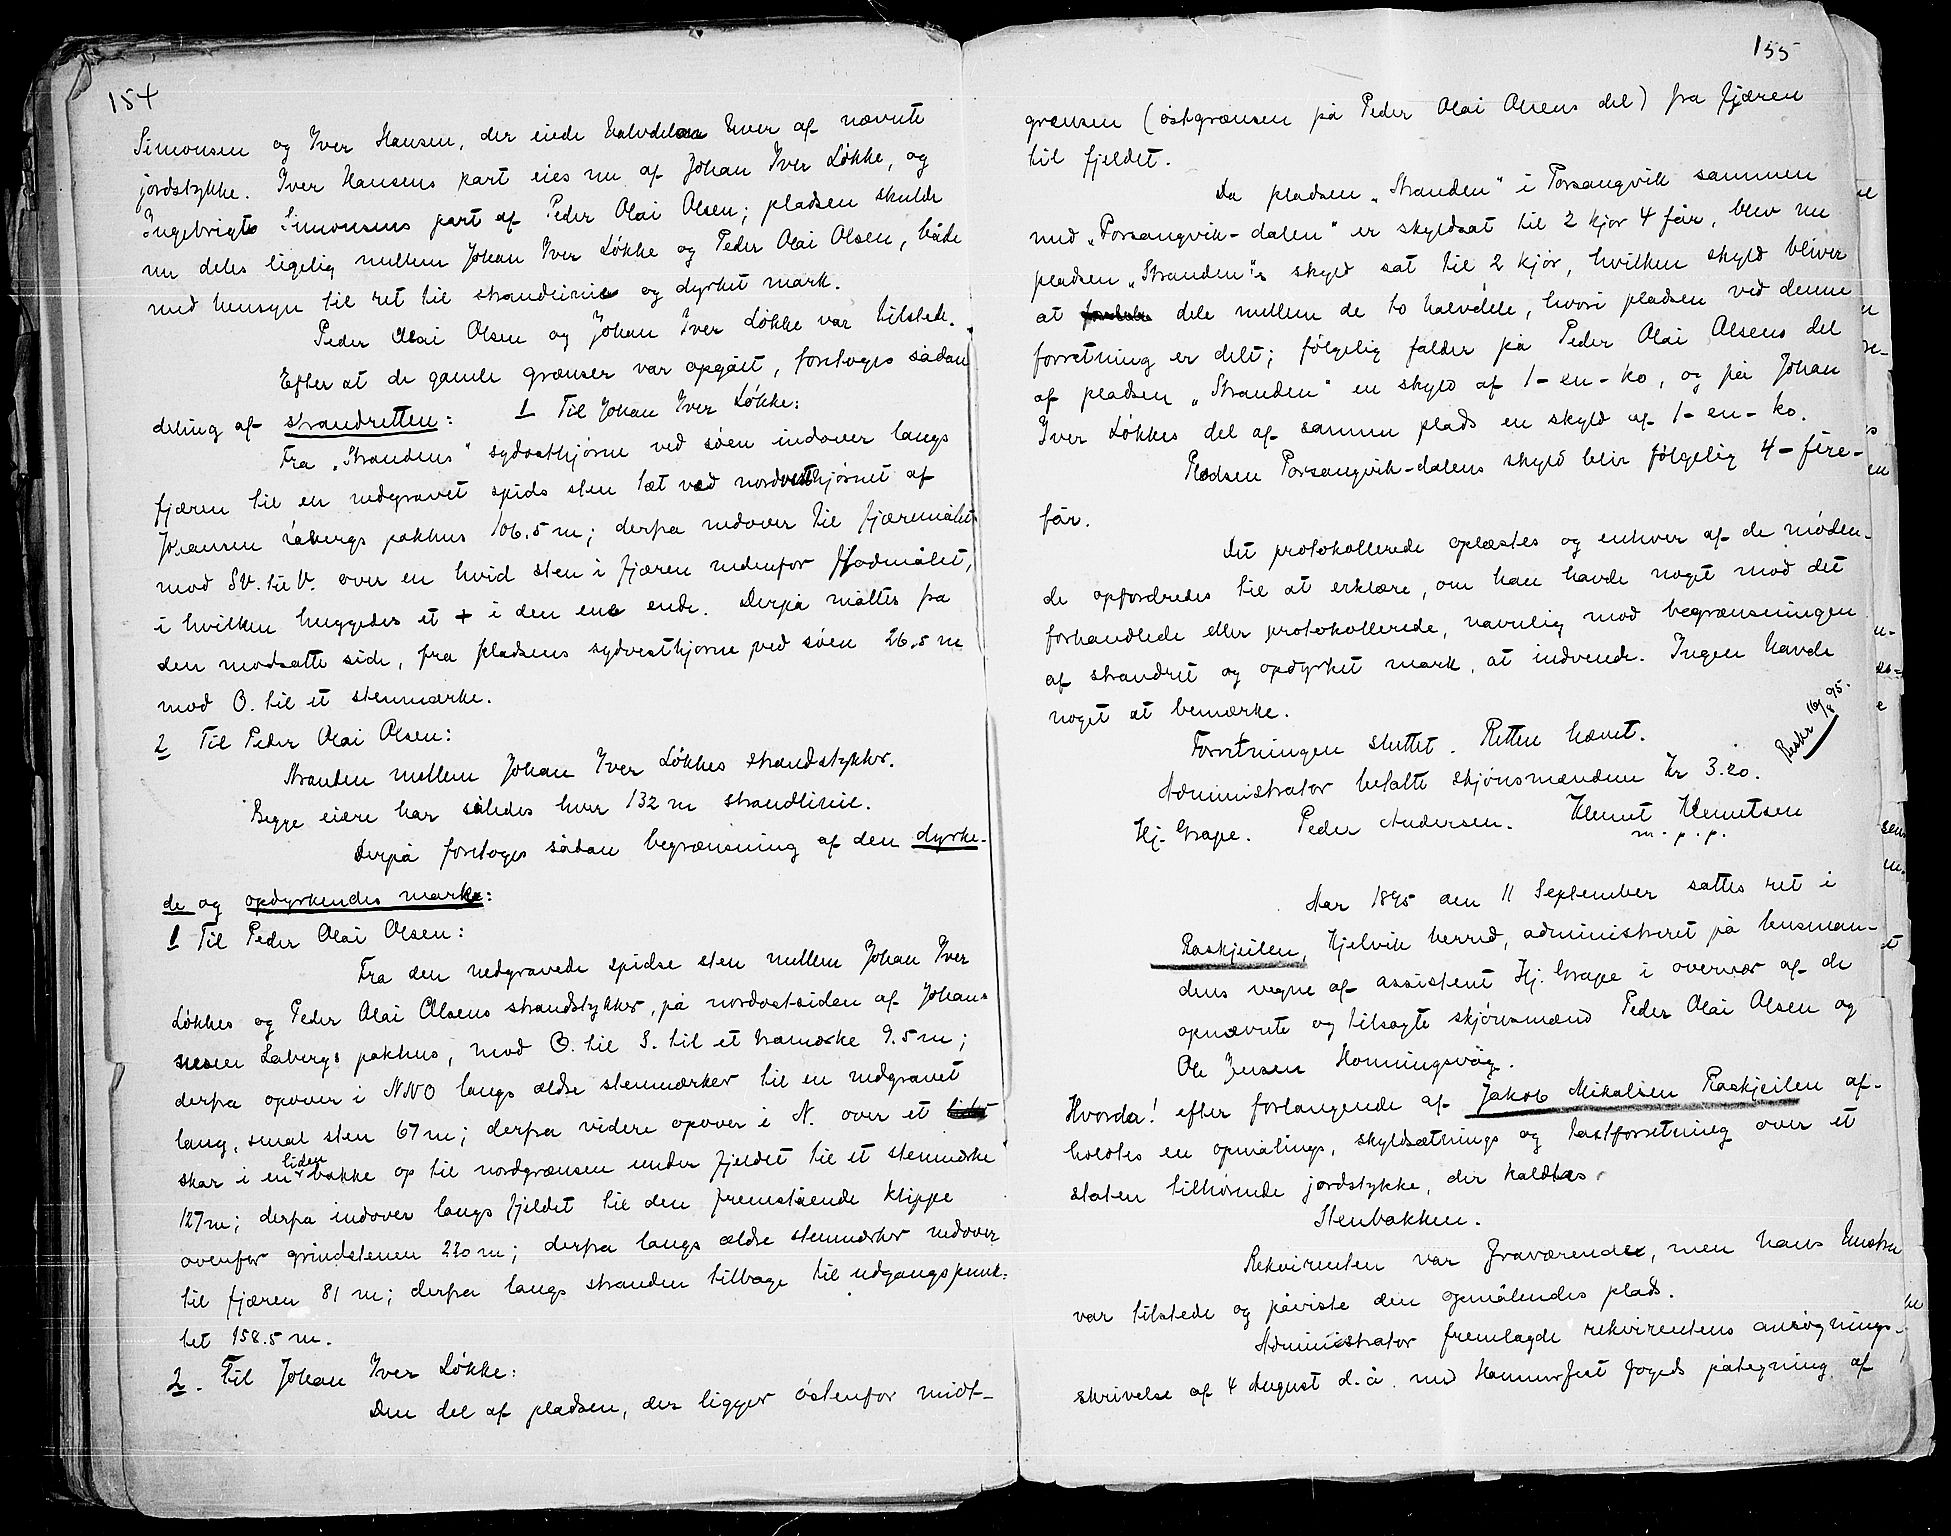 154
Simonsen og Iver Hansen, der eiede halvdelen hver af nævnte
jordstykke. Iver Hansens part eies nu af Johan Iver Løkke, og
Ingebrigts Simonsens part af Peder Olai Olsen; pladsen skulde
nu deles ligelig mellem Johan Iver Løkke og Peder Olai Olsen, både
med hensyn til ret til strandlinie og dyrket mark.
Peder Olai Olsen og Johan Iver Løkke var tilstede.
Efter at de gamle grænser var opgået, foretoges sådan
deling af strandretten: 1 Til Johan Iver Løkke:
Fra „Strandens" sydosthjørne ved søen indover langs
fjæren til en nedgravet spids sten tæt ved nordvesthjørnet af
Johansen Labergs pakhus 106,5 m; derfra nedover til fjæremålet
mod SV. til V. over en hvid sten i fjæren nedenfor flodmålet,
i hvilken huggedes et + i den ene ende. Derpå måltes fra
den modsatte side, fra pladsens sydvesthjørne ved søen 26,5 m
mod O. til et stenmærke.
2 Til Peder Olai Olsen:
Stranden mellem Johan Iver Løkkes strandstykker.
Begge eiere har således hver 132 m strandlinie.
Derpå foretoges sådan begrænsning af den dyrke-
de og opdyrkendes mark:
1 Til Peder Olai Olsen:
Fra den nedgravede spidse sten mellem Johan Iver
Løkkes og Peder Olai Olsens strandstykker, på nordostsiden af Johan-
nesen Labergs pakhus, mod O. til S. til et træmærke 9.5 m;
derfra opover i NNO langs ældre stenmærker til en nedgravet
lang, smal sten 67 m; derfra videre opover i N. over et
skar i en liden bakke op til nordgrænsen under fjeldet til et stenmærke
127 m; derfra indover langs fjeldet til den fremstående klippe
ovenfor grindstenen 220 m; derfra langs ældre stenmærker nedover
til fjæren 81 m; derfra langs stranden tilbage til udgangspunk-
tet 158.5 m.
2. Til Johan Iver Løkke:
Den del af pladsen, der ligger østenfor midt-
155
grænsen (østgrænsen på Peder Olai Olsens del) fra fjæren
til fjeldet.
Da pladsen „Stranden" i Porsangvik sammen
med „Porsangvik-dalen" er skyldsat til 2 kjør 4 får, blev nu
pladsen „Stranden"s skyld sat til 2 kjør, hvilken skyld bliver
at dele mellem de to halvdele, hvori pladsen ved denne
forretning er delt; følgelig falder på Peder Olai Olsens del
af pladsen „Stranden" en skyld af 1-en-ko, og på Johan
Iver Løkkes del af samme plads en skyld af 1-en-ko.
Pladsen Porsangvik-dalens skyld blir følgelig 4-fire-
får.
Det protokollerede oplæstes og enhver af de møden-
de opfordredes til at erklære, om han havde noget mod det
forhandlede eller protokollerede, navnlig mod begrænsningen
af strandret og opdyrket mark, at indvende. Ingen havde
noget at bemærke.
Forretningen sluttet. Retten hævet.
Administrator betalte skjønsmændene Kr 3.20.
16/8 95.
Hj. Grape. Peder Andersen. Klemet Klemetsen
m. p. p.
Aar 1895 den 11 September sattes ret i
Raskjeilen, Kjelvik herred, administreret på husman-
dens vegne af assistent Hj. Grape i overvær af de
opnævnte og tilsagte skjønsmænd Peder Olai Olsen og
Ole Jensen Honningsvåg.
Hvorda! efter forlangende af Jakob Mikalsen Raskjeilen af-
holdtes en opmålings, skyldsætnings og taxtforretning over et
staten tilhørende jordstykke, der kaldtes
Stenbakken.
Rekvirenten var fraværende, men hans hustru
var tilstede og påviste den opmålendes plads.
Administrator fremlagde rekvirentens ansøgnings-
skrivelse af 4 August d. å. med Hammerfest fogeds påtegning af